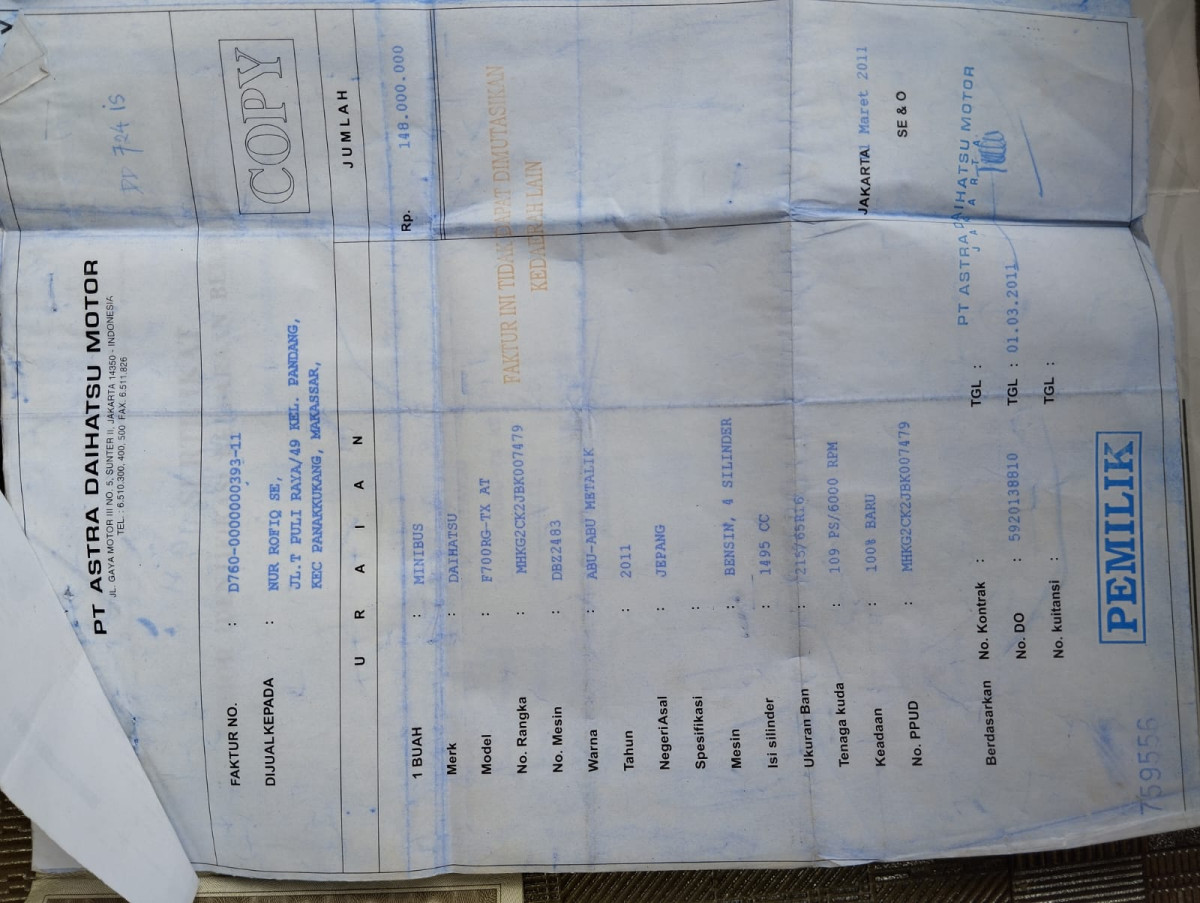 DD 724 IS
PT ASTRA DAIHATSU MOTOR
JL. GAYA MOTOR III NO. 5, SUNTER II, JAKARTA 14350 - INDONESIA
TEL. : 6.510.300, 400, 500 FAX. 6.511.826
COPY
FAKTUR NO. : D760-0000000393-11
DIJUAL KEPADA : NUR ROFIQ SE,
JL.T PULI RAYA/49 KEL. PANDANG,
KEC PANAKKUKANG, MAKASSAR,
U R A I A N JUMLAH
1 BUAH : MINIBUS Rp. 148.000.000
Merk : DAIHATSU
Model : F700RG-TX AT
No. Rangka : MHKG2CK2JBK007479
No. Mesin : DBZ2483
Warna : ABU-ABU METALIK
Tahun : 2011
Negeri Asal : JEPANG
Spesifikasi :
Mesin : BENSIN, 4 SILINDER
Isi silinder : 1495 CC
Ukuran Ban : 215/65R16
Tenaga kuda : 109 PS/6000 RPM
Keadaan : 100% BARU
No. PPUD : MHKG2CK2JBK007479
FAKTUR INI TIDAK DAPAT DIMUTASIKAN
KEDAERAH LAIN
JAKARTA1 Maret 2011
SE & O
PT ASTRA DAIHATSU MOTOR
J A K A R T A
Berdasarkan No. Kontrak : TGL :
No. DO : 5920138810 TGL : 01.03.2011
No. kuitansi : TGL :
PEMILIK
759556